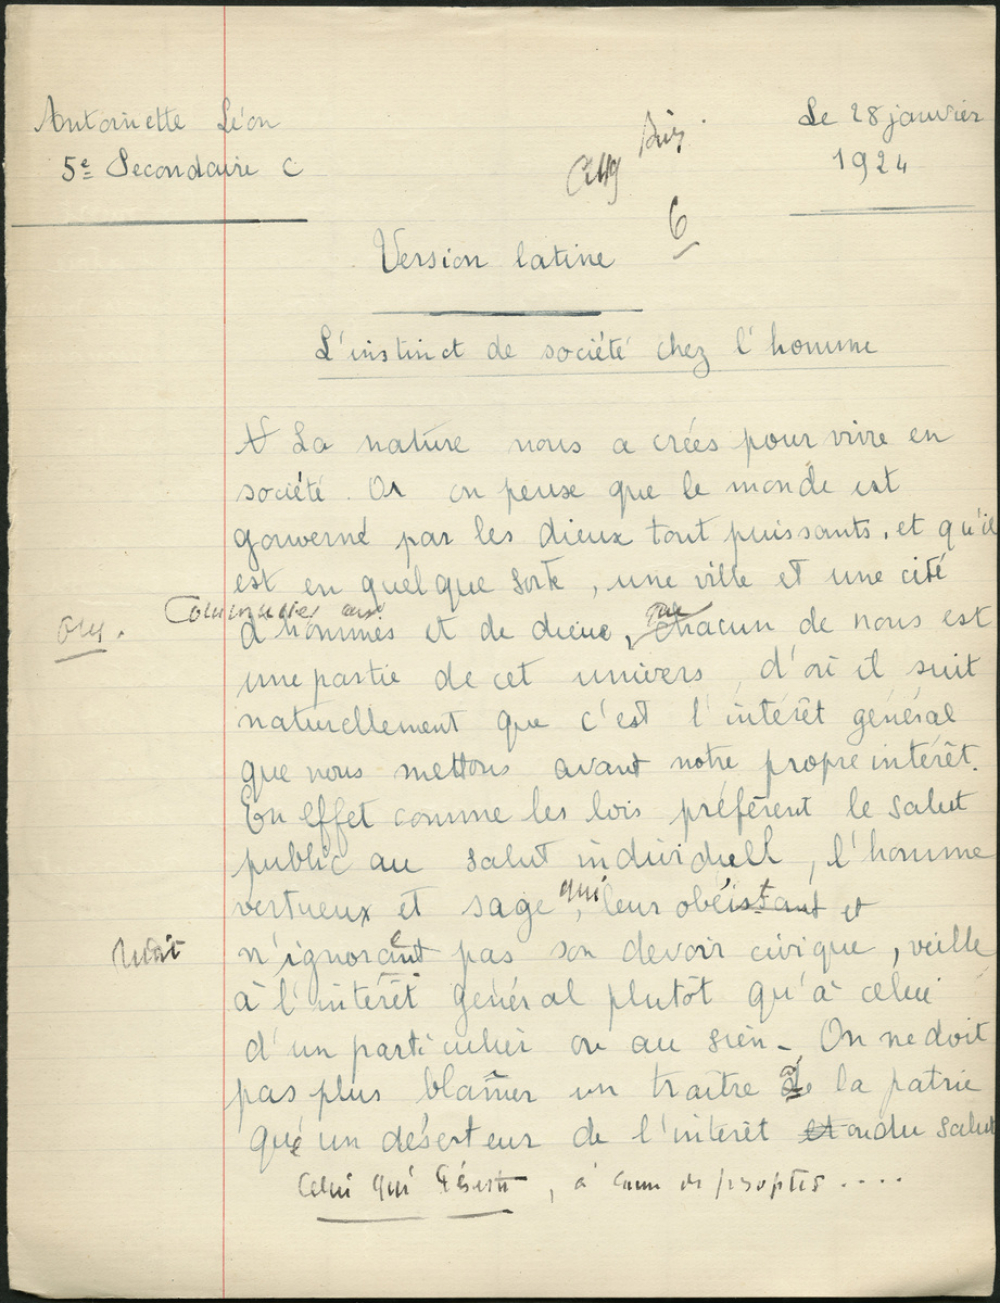 Antoinette Léon
Le 28 janvier
5e Secondaire C
1924
6
Version latine
L'instinct de société chez l'homme
La nature nous a créés pour vivre en
société. Or on pense que le monde est
gouverné par les dieux tout puissants, et qu'il
est en quelque sorte, une ville et une cité
commune aux
d'hommes et de dieux, que chacun de nous est
une partie de cet univers, d'où il suit
naturellement que c'est l'intérêt général
que nous mettons avant notre propre intérêt.
En effet comme les lois préfèrent le salut
public au salut individuell, l'homme
vertueux et sage, qui leur obéistant et
n'ignorant pas son devoir civique, veille
à l'intérêt général plutôt qu'à celui
d'un particulier ou au sien - On ne doit
pas plus blâmer un traître de la patrie
que un déserteur de l'intérêt et ou du salut
celui qui déserte, à cause de